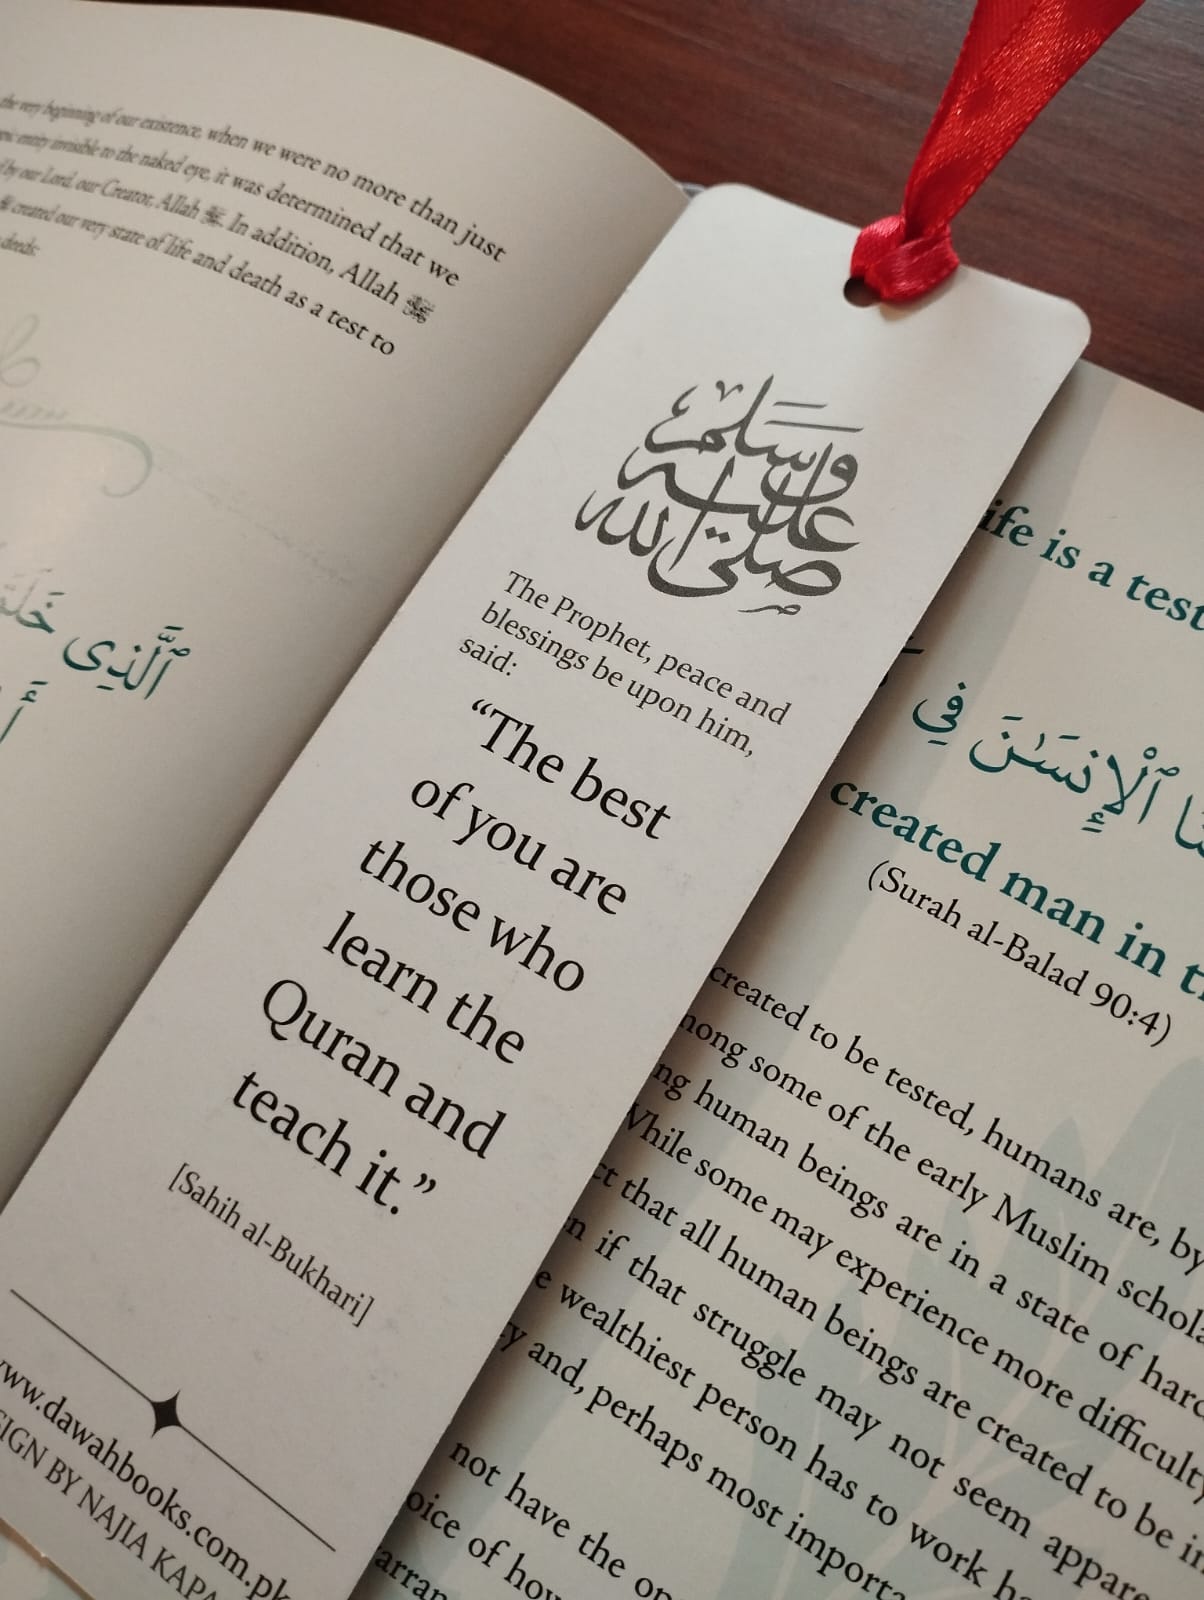 the very beginning of our existence, when we were no more than just
entity invisible to the naked eye, it was determined that we
by our Lord, our Creator, Allah ﷻ. In addition, Allah ﷻ
created our very state of life and death as a test to
deeds:
ٱلَّذِى
صلى الله
عليه
وسلم
The Prophet, peace and
blessings be upon him,
said:
“The best
of you are
those who
learn the
Quran and
teach it.”
[Sahih al-Bukhari]
www.dawahbooks.com.pk
BY NAJIA
ife is a test
ٱلْإِنسَـٰنَ فِي
created man in
(Surah al-Balad 90:4)
created to be tested, humans are, by
some of the early Muslim
human beings are in a state of
While some may experience more difficulty
that all human beings are created to be in
if that struggle may not seem
wealthiest person has to work
and, perhaps most
not have the
of how